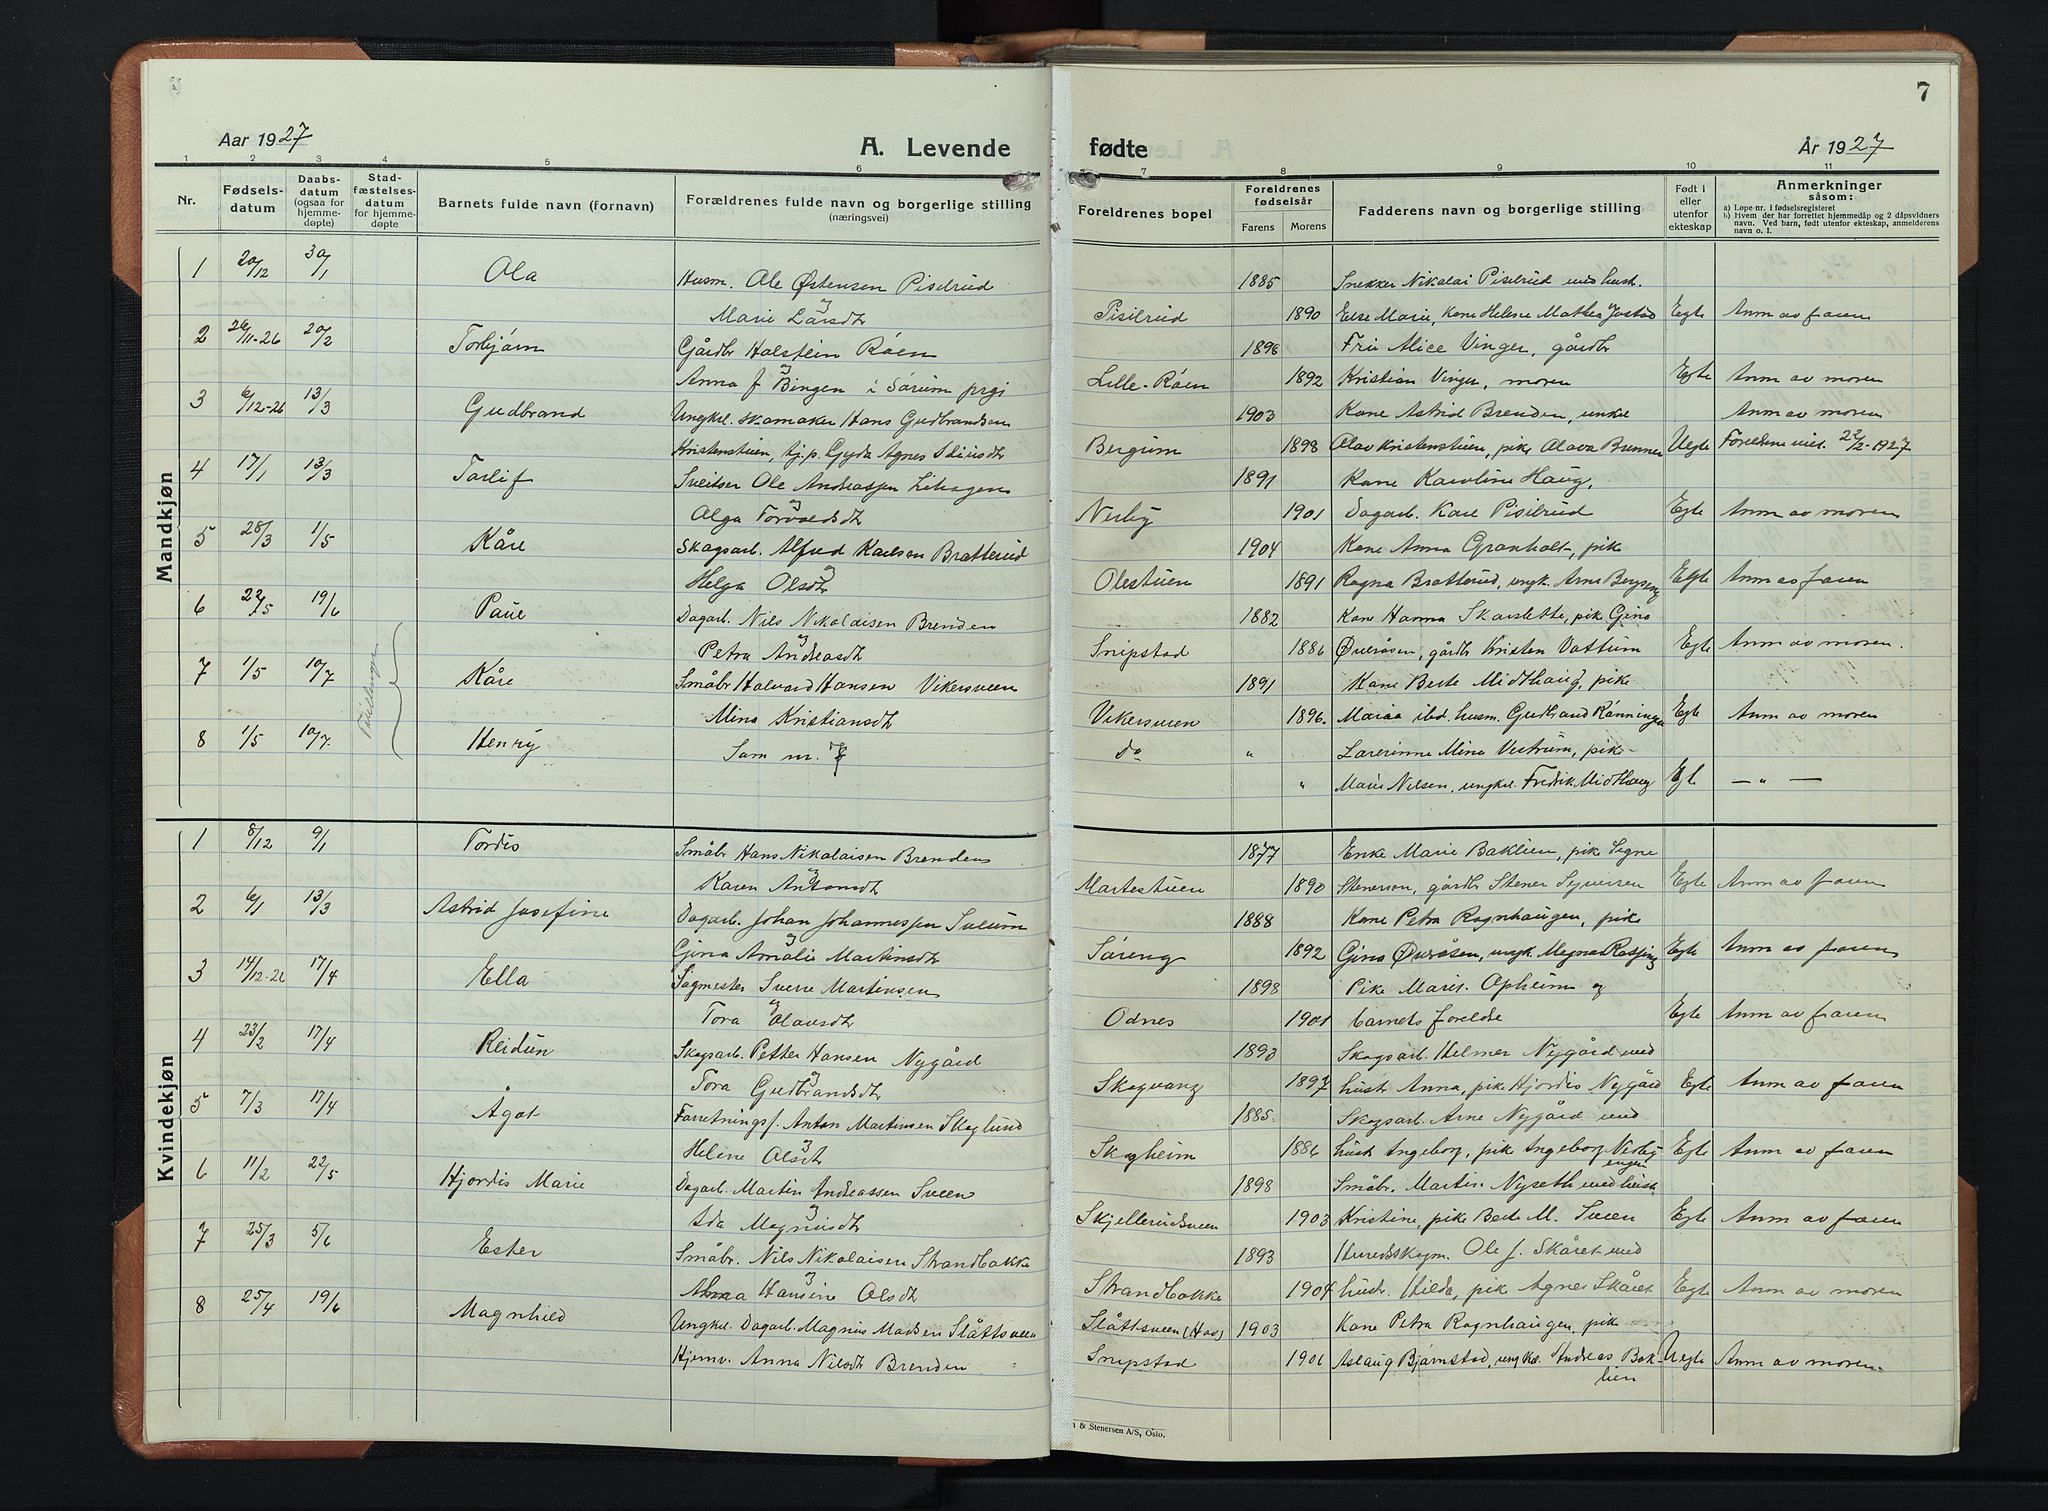 7
Aar 1927
A. Levende
fødte
År 1927
1 2 3 4 5 6 7 8 9 10 11
Nr.
Fødsels-
datum
Daabs-
datum
(ogsaa for
hjemme-
døpte)
Stad-
fæstelses-
datum
for hjemme-
døpte
Barnets fulde navn (fornavn)
Forældrenes fulde navn og borgerlige stilling
(næringsvei)
Foreldrenes bopel
Foreldrenes
fødselsår
Farens Morens
Fadderens navn og borgerlige stilling
Født i
eller
utenfor
ekteskap
Anmerkninger
såsom:
a) Løpe-nr. i fødselsregisteret
b) Hvem der har forrettet hjemmedåp og 2 dåpsvidners
navn. Ved barn, født utenfor ekteskap, anmelderens
navn o. l.
Mandkjøn
1 20/12 30/1 Ola Husm. Ole Østensen Pisilrud 1885 Snekker Nikolai Pisilrud med hust.
Marie Larsdtr Pisilrud 1890 Else Marie, Kone Helene Mathea Egte Anm av faren
2 26/11-26 20/2 Torbjørn Gårdbr Halstein Röen 1898 Fru Alice Vinger, gårdbr
Anna f Bingen i Sørum prgj Lille-Röen 1892 Kristian Vinger, moren Egte Anm av moren
3 6/12-26 13/3 Gudbrand Ungkl. skomaker Hans Gudbrandsen 1903 Kone Astrid Brenden, unkel Anm av moren
Kristenstuen, tj.p. Gyda Agnes Bergum 1898 Olav Kristenstuen, pike Olava Brunner Uegte Foreldrene viet. 22/2-1927
4 17/1 13/3 Torlif Sveitser Ole Andreassen Lihagen 1891 Kone Karoline Haug,
Olga Torvaldsdtr Nerby 1901 Dagarb. Kare Pisilrud Egte Anm av moren
5 28/3 1/5 Kåre Skogsarb. Alfred Karlsen Bratterud 1904 Kone Anna Granholt, pik
Helga Olsdtr Olestuen 1891 Ragna Bratterud, ungk. Arne Bergseng Egte Anm av faren
6 22/5 19/6 Paul Dagarb. Nils Nikolaisen Brenden 1882 Kone Hanna Skarslette, pik Gina
Petra Andreasdtr Snipstad 1886 Øveråsen, gårdbr Kristen Vattum Egte Anm av moren.
7 1/5 10/7 Kåre Småbr Halvard Hansen Vikersveen 1891 Kone Berte Midthaug, pike
Mina Kristiansdtr Vikersveen 1896. Maria ibd. husm. Gudbrand Rønningen Egte Anm av moren
8 1/5 10/7. Henry Som nr. 7 do " Lærerinne Mina Vestrum, pik-
" Marie Nilsen, ungkl. Fredrik Midthaug Egte — " —
Kvindekjøn
1 8/12 9/1 Tordis Småbr Hans Nikolaisen Brenden 1877 Enke Marie Baklien, pik Signe
Karen Antonsdtr Martestuen 1890 Stenersen, gårdbr Stener Syversen Egte Anm av faren
2 6/1 13/3 Astrid Josefine Dagarb. Johan Johannessen Sveum 1888 Kone Petra Rognhaugen, pik
Gina Amalie Martinsdtr Søreng 1892 Gina Øveråsen, ungk. Magnar Egte Anm av faren
3 14/12-26 17/4 Ella Sagmester Sverre Martinsen 1898 Pike Marie. Opheim og
Tora Olausdtr Odnes 1901 barnets foreldre Egte Anm av faren
4 23/2 17/4 Reidun Skogsarb. Petter Hansen Nygård 1893 Skogsarb. Helmer Nygård med
Tora Gudbrandsdtr Skogvang 1897 hustr Anna, pik Hjördis Nygård Egte Anm av faren
5 7/3 17/4 Ågot Forretningsf. Anton Martinsen Skoglund 1885. Skogsarb. Arne Nygård med
Helene Olsdtr Skogheim 1886 hustr Ingeborg, pik Ingeborg Nerby- Egte Anm av faren
engen
6 11/2 22/5 Hjördis Marie Dagarb. Martin Andreassen Sveen 1898 Småbr. Martin Nyseth med hustr
Ada Magnusdtr Skjellerudsveen 1903 Kristine, pik Berte M. Sveen Egte Anm av faren
7 25/3 5/6 Ester Småbr. Nils Nikolaisen Strandbakke 1893 Herredskogm. Ole J. Skåret med
Anna Hansine Olsdtr Strandbakke 1904 hustr. Hilda, pik Agnes Skåret Egte Anm av moren
8 25/4 19/6 Magnhild Ungkl. Dagarb. Magnus Madsen Slåttsveen Slåttsveen (Hov) 1903 Kone Petra Rognhaugen, pik
Hjemv. Anna Nilsdtr Brenden Snipstad 1906 Aslaug Bjørnstad, ungkl. Andreas Bak- Uegte Anm av moren.
lien
& Stenersen A/S, Oslo.